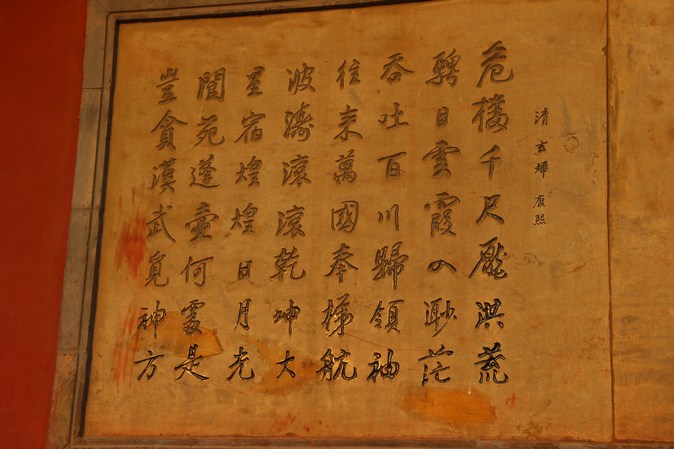 清 玄燁 康熙
危樓千尺壓洪荒
騁目雲霞入渺茫
吞吐百川歸領袖
往来萬國奉梯航
波濤滾滾乾坤大
星宿煌煌日月光
閬苑蓬壺何處是
豈貪漢武覓神方